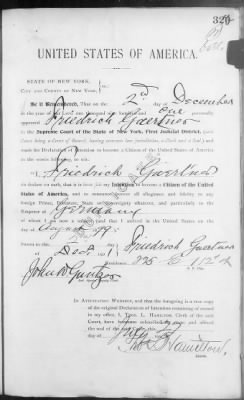 320
UNITED STATES OF AMERICA.
STATE OF NEW YORK,
CITY AND COUNTY OF NEW YORK,
Be it Remembered, That on the 2nd day of December
in the year of our Lord one thousand nine hundred and one personally
appeared Friedrich Gaertner
in the Supreme Court of the State of New York, First Judicial District, (said
Court being a Court of Record, having common law jurisdiction, a Clerk and a Seal,) and
made his Declaration of Intention to become a Citizen of the United States of America
in the words following, to wit:
I, Friedrich Gaertner
do declare on oath, that it is bona fide my Intention to become a Citizen of the United
States of America, and to renounce forever all allegiance and fidelity to any
foreign Prince, Potentate, State or sovereignty whatever, and particularly to
the Emperor of Germany
of whom I am now a subject and that I arrived in the United States on the
day of August
Sworn to this 2
day of Dec. 1901
Friedrich Gaertner
Residence, 225 E
IN ATTESTATION WHEREOF, and that the foregoing is a true copy
of the original Declaration of Intention remaining of record
in my office, I, THOS. L. HAMILTON, Clerk of the said
Court, have hereunto subscribed my name and affixed
the seal of the said Court, this
day of July
Thos L Hamilton,
Clerk.